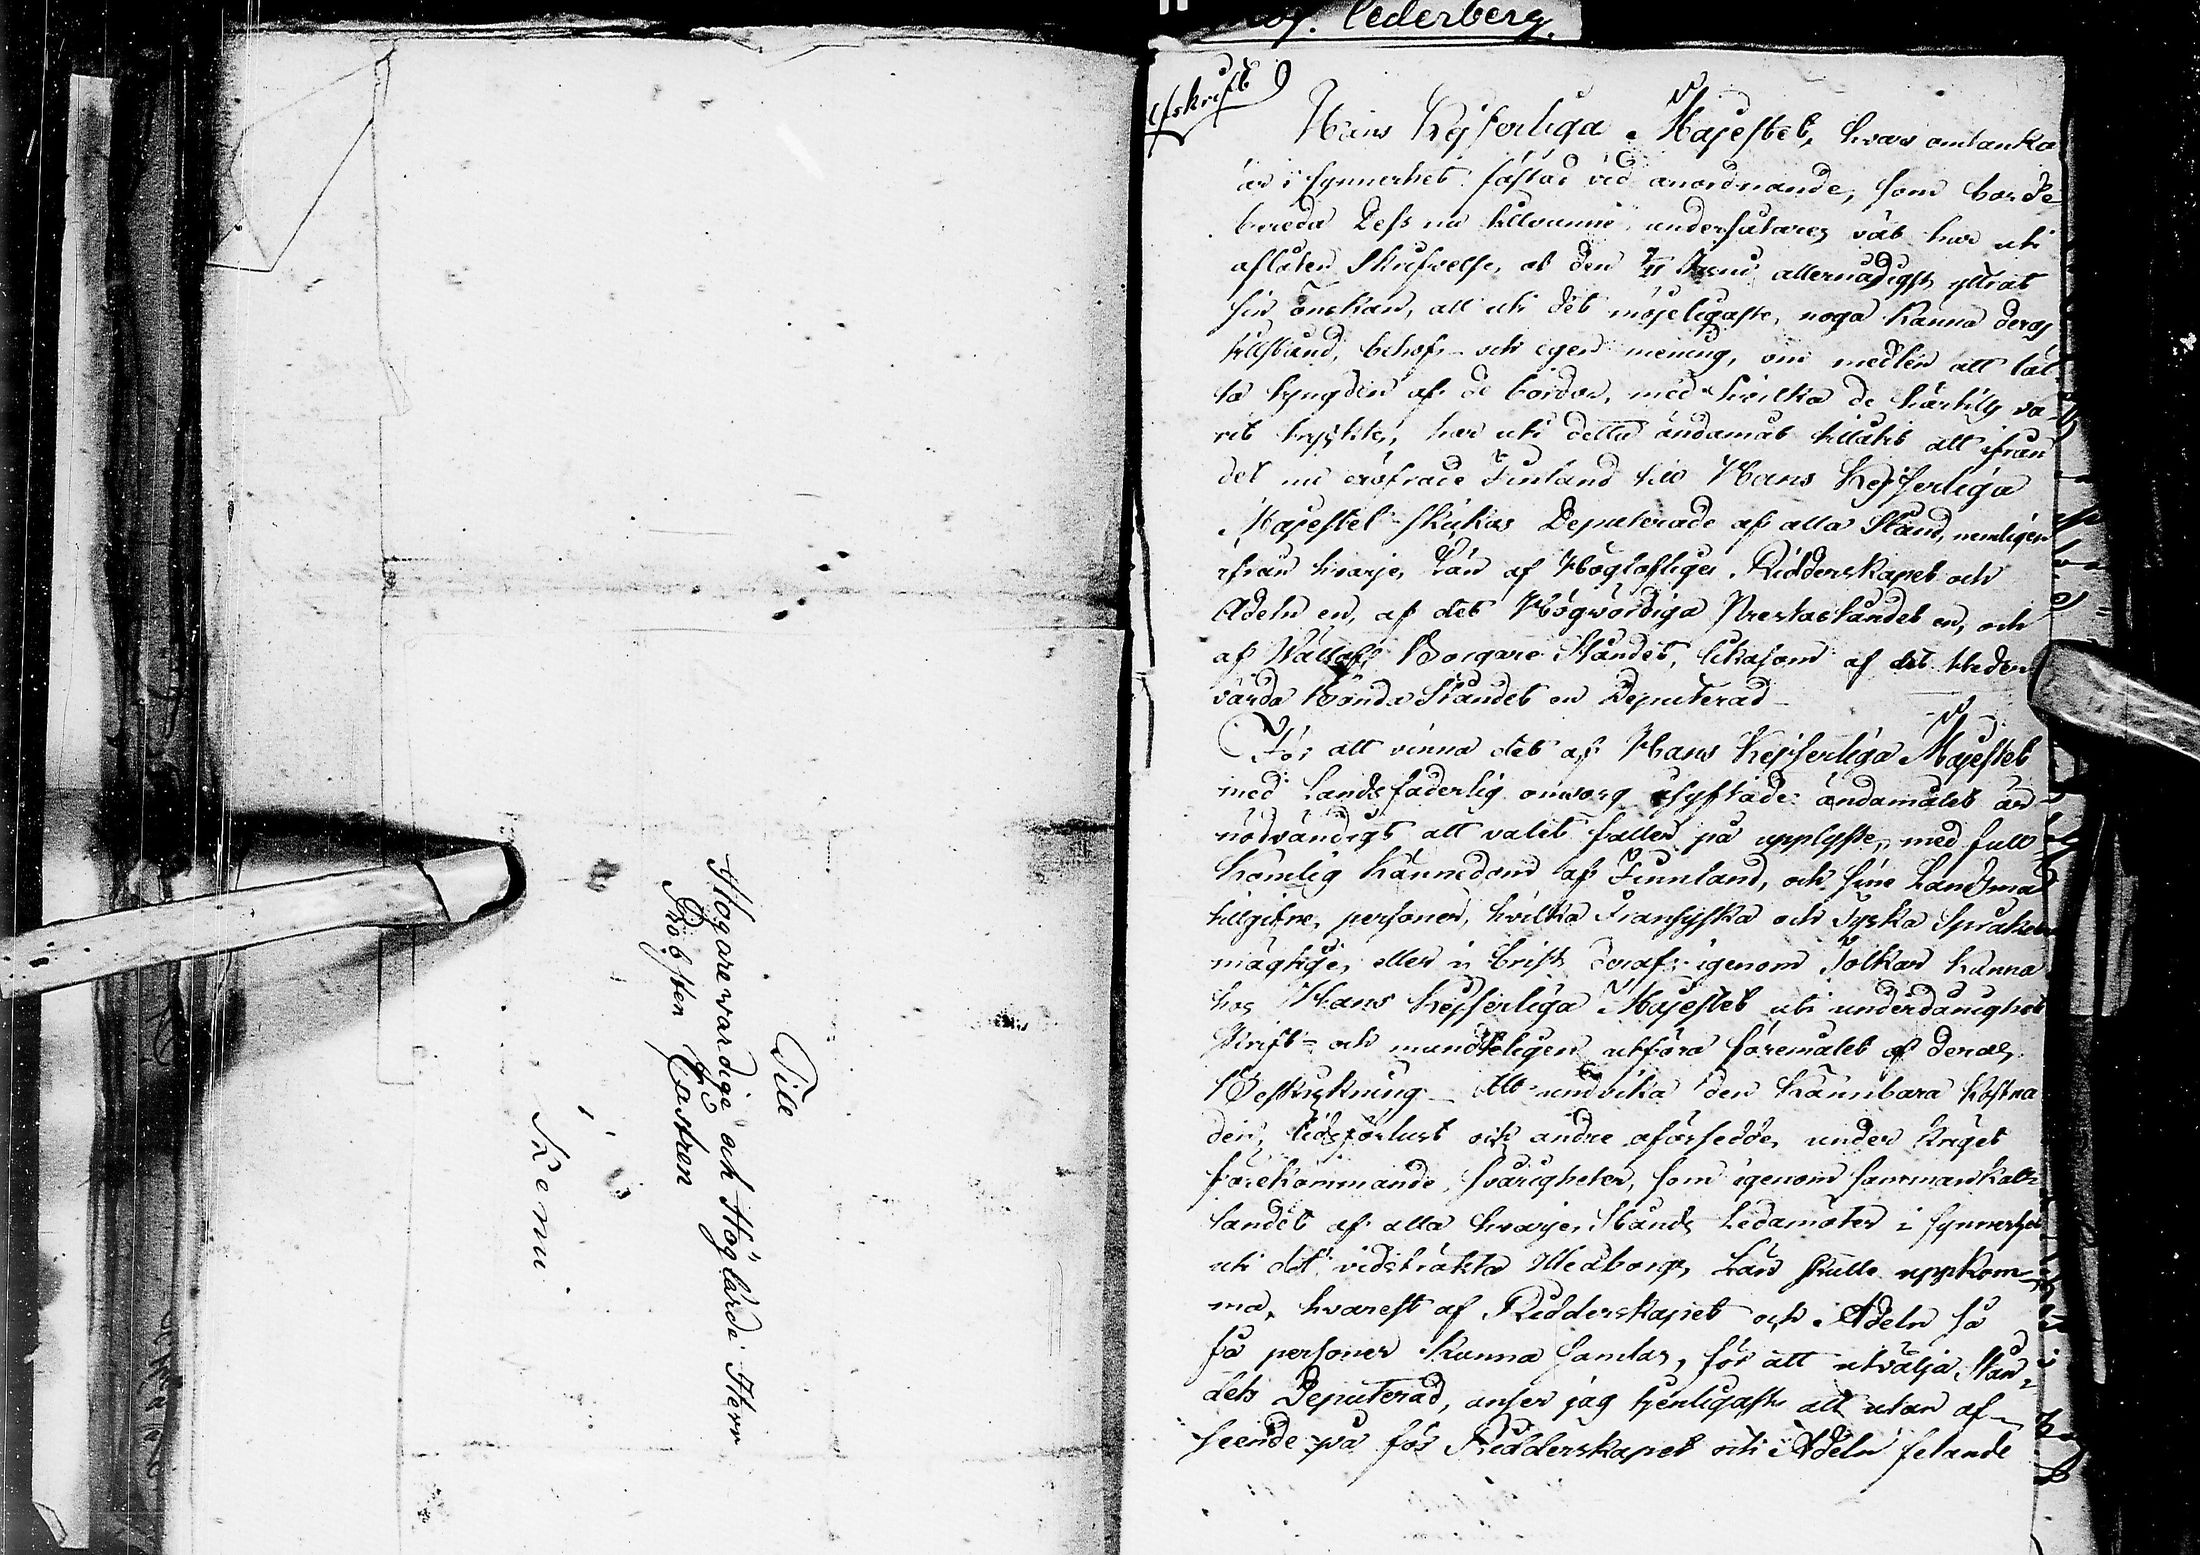 Till
Högarewardige och Höglärde Herr
Probsten Castren
i
Kemi
Cederberg.
Afskrift
Hans Kejserliga Majestet, hvars omtanka
är i synnerhet fästad vid anordnande, som borde
bereda Dess nu tillvunne undersåtares väl har uti
aflåten Skrifvelse, af den Juni allernådigst yttrat
sin önskan, att uti det möjeligaste, noga kanna deras
tillstånd, behof och egen mening, om medlen att lät
ta tyngden af de bördor, med hvilka de härtills va
rit tryckte, har uti detta ändamål tillåtit att ifrån
det nu eröfrade Finland till Hans Kejserliga
Majestet skickas Deputerade af alla Stånd, nemligen
ifrån hvarje Län af Höglofliga Ridderskapet och
Adeln en, af det Högvördiga Prestaståndet en, och
af Vällofl. Borgare Ståndet, likasom af det Heder
värda Bonde Ståndet en Deputerad
För att vinna det af Hans Kejserliga Majestet
med Landsfaderlig omsorg åsyftade ändamålet är
nödvändigt att valet faller på upplyste, med full
komlig kännedom af Finnland, och sine Landsmän
tillgifne personer, hvilka Fransyska och Tyska Språken
mägtige, eller i brist deraf igenom Tolkar kunna
hos Hans Kejserliga Majestet uti underdånighet
skrift- och mundteligen utföra föremålet af deras
Beskickning Att undvika den kännbara kostna
den, tidsförlust och andre oförsedde, under kriget
förekommande, svårigheter, som igenom sammankal-
landet af alla hvarje Stånds Ledamöter i synnerhet
uti det vidsträkta Uleåborgs Län skulle uppkom-
ma, hvarest af Ridderskapet och Adeln så
få personer kunna samlas, för att utvälja Stån-
dets Deputerad, anser jag tjenligast att utan af-
seende på för Ridderskapet och Adeln felande